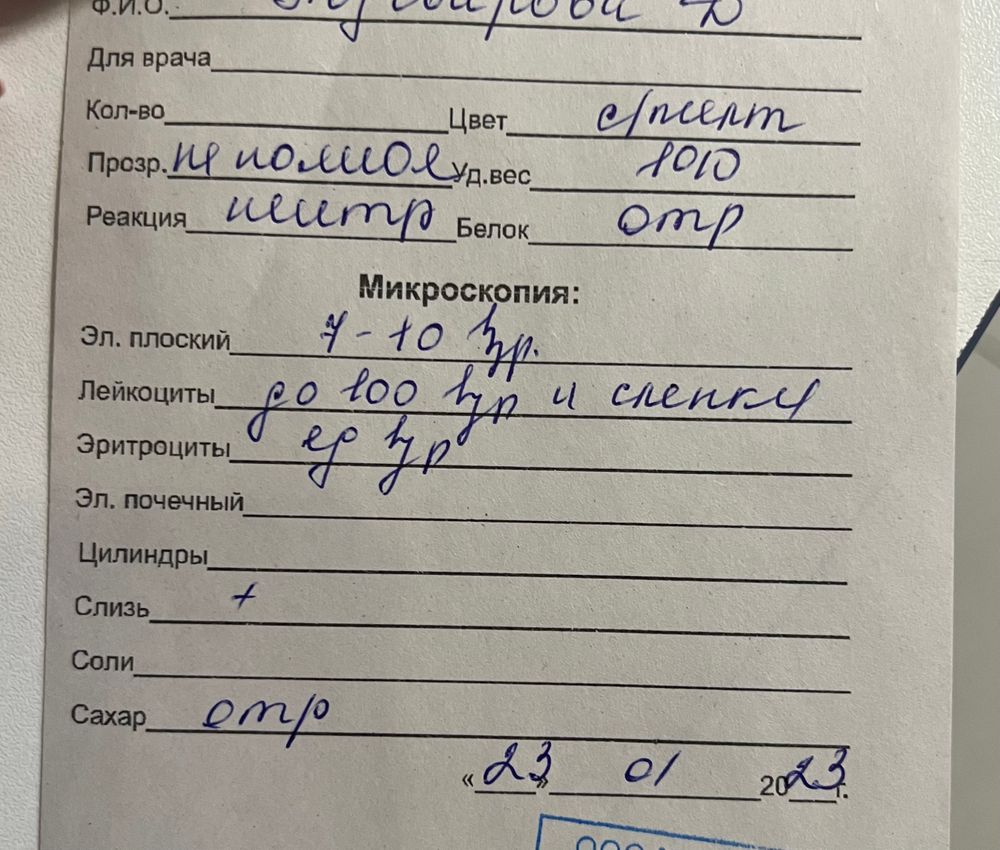 Ф.И.О.
Для врача
Кол-во Цвет с/желт
Прозр. не полная Уд.вес 1010
Реакция нейтр Белок отр
Микроскопия:
Эл. плоский 7-10 в/зр.
Лейкоциты до 100 в/зр и слепки
Эритроциты ед в/зр
Эл. почечный
Цилиндры
Слизь +
Соли
Сахар отр
«23» 01 2023г.
ООО